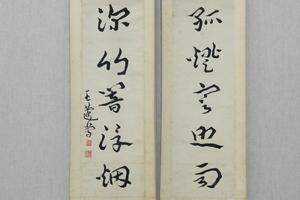 孤燈寒照雨
深竹暗浮烟
王蘧常